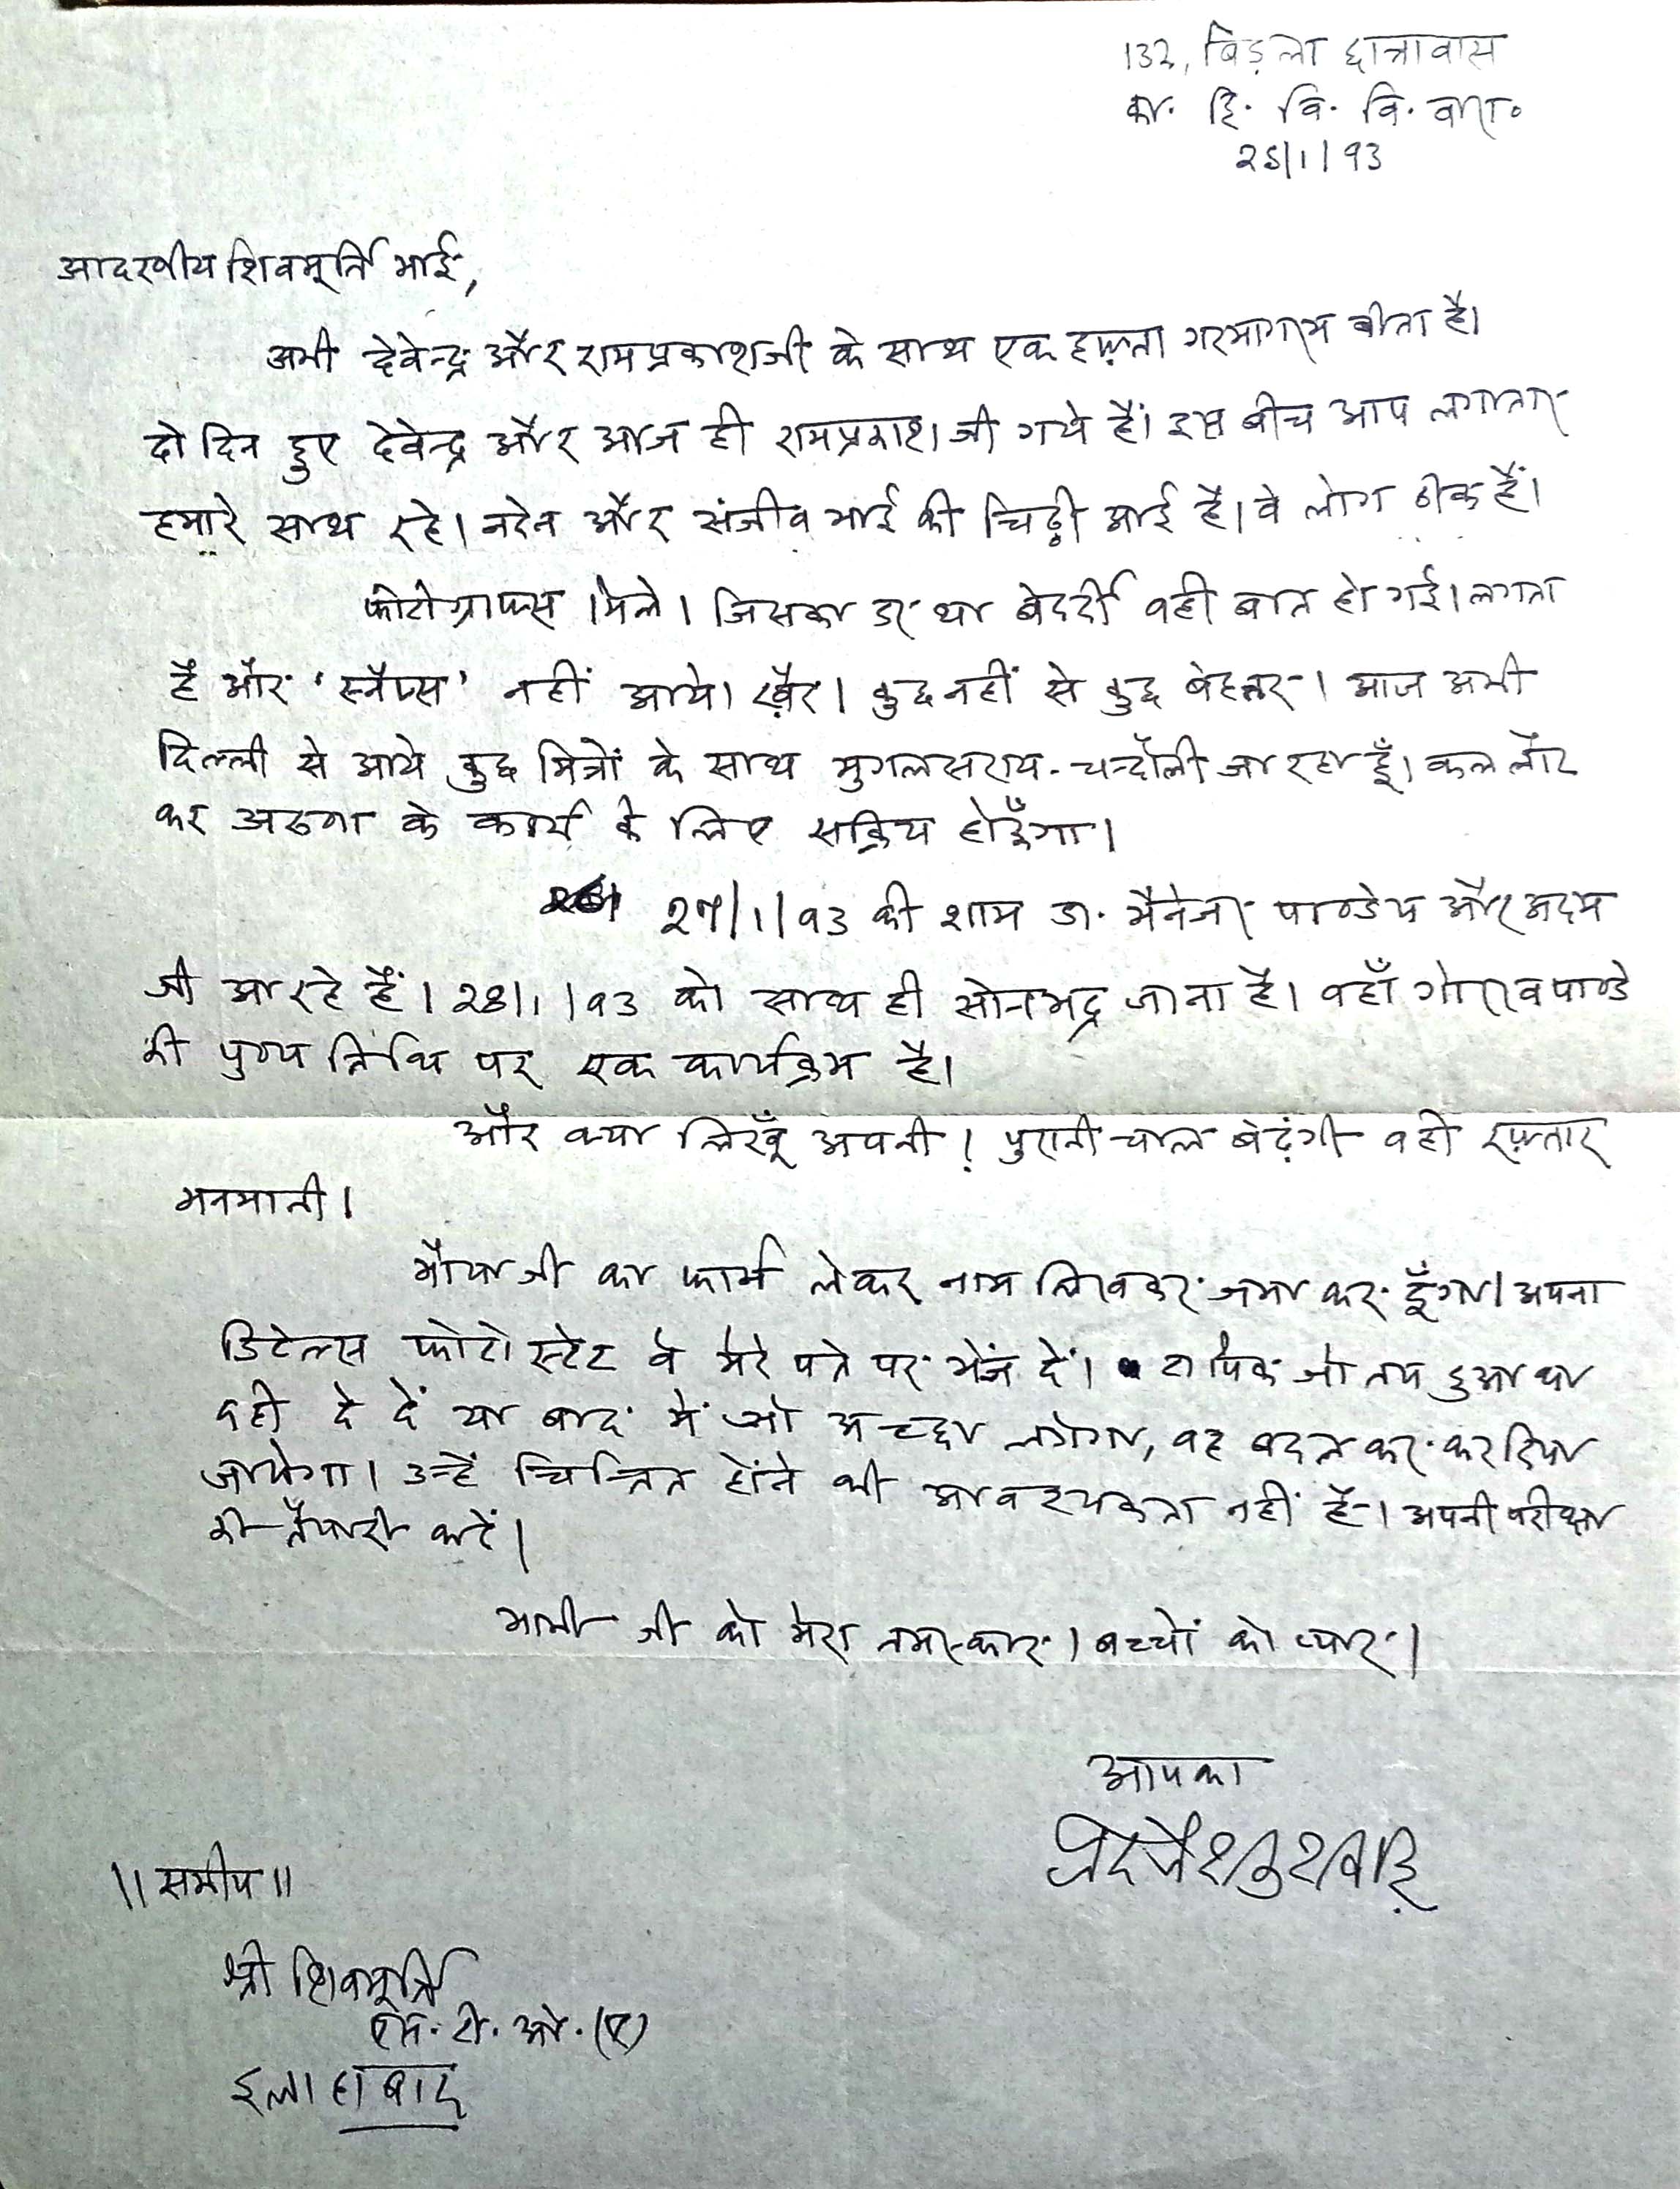 132, बिड़ला छात्रावास
का. हि. वि. वि. वारा०
25/1/93
आदरणीय शिवमूर्ति भाई,
अभी देवेन्द्र और रामप्रकाशजी के साथ एक हफ़्ता गरमागरम बीता है।
दो दिन हुए देवेन्द्र और आज ही रामप्रकाश जी गये हैं। इस बीच आप लगातार
हमारे साथ रहे। नरेन और संजीव भाई की चिट्ठी आई है। वे लोग ठीक हैं।
फोटोग्राफ्स मिले। जिसका डर था बेदर्दी वही बात हो गई। लगता
है और 'स्नैप्स' नहीं आये। ख़ैर। कुछ नहीं से कुछ बेहतर। आज अभी
दिल्ली से आये कुछ मित्रों के साथ मुगलसराय-चन्दौली जा रहा हूँ। कल लौट
कर अरुणा के कार्य के लिए सक्रिय होऊँगा।
27/1/93 की शाम डा. मैनेजर पाण्डेय और अदम
जी आ रहे हैं। 28/1/93 को साथ ही सोनभद्र जाना है। वहाँ गोरख पाण्डे
की पुण्य तिथि पर एक कार्यक्रम है।
और क्या लिखूँ अपनी! पुरानी चाल बेढ़ंगी वही रफ़्तार
मनमानी।
मौर्या जी का फार्म लेकर नाम लिखकर जमा कर दूँगा। अपना
डिटेल्स फोटोस्टेट वे मेरे पते पर भेज दें। टापिक जो तय हुआ था
वही दे दें या बाद में जो अच्छा लगेगा, वह बदल कर कर दिया
जायेगा। उन्हें चिन्तित होने की आवश्यकता नहीं है। अपनी परीक्षा
की तैयारी करें।
भाभी जी को मेरा नमस्कार। बच्चों को प्यार।
आपका
॥ समीप ॥
श्री शिवमूर्ति
एस. टी. ओ. (ए)
इलाहाबाद